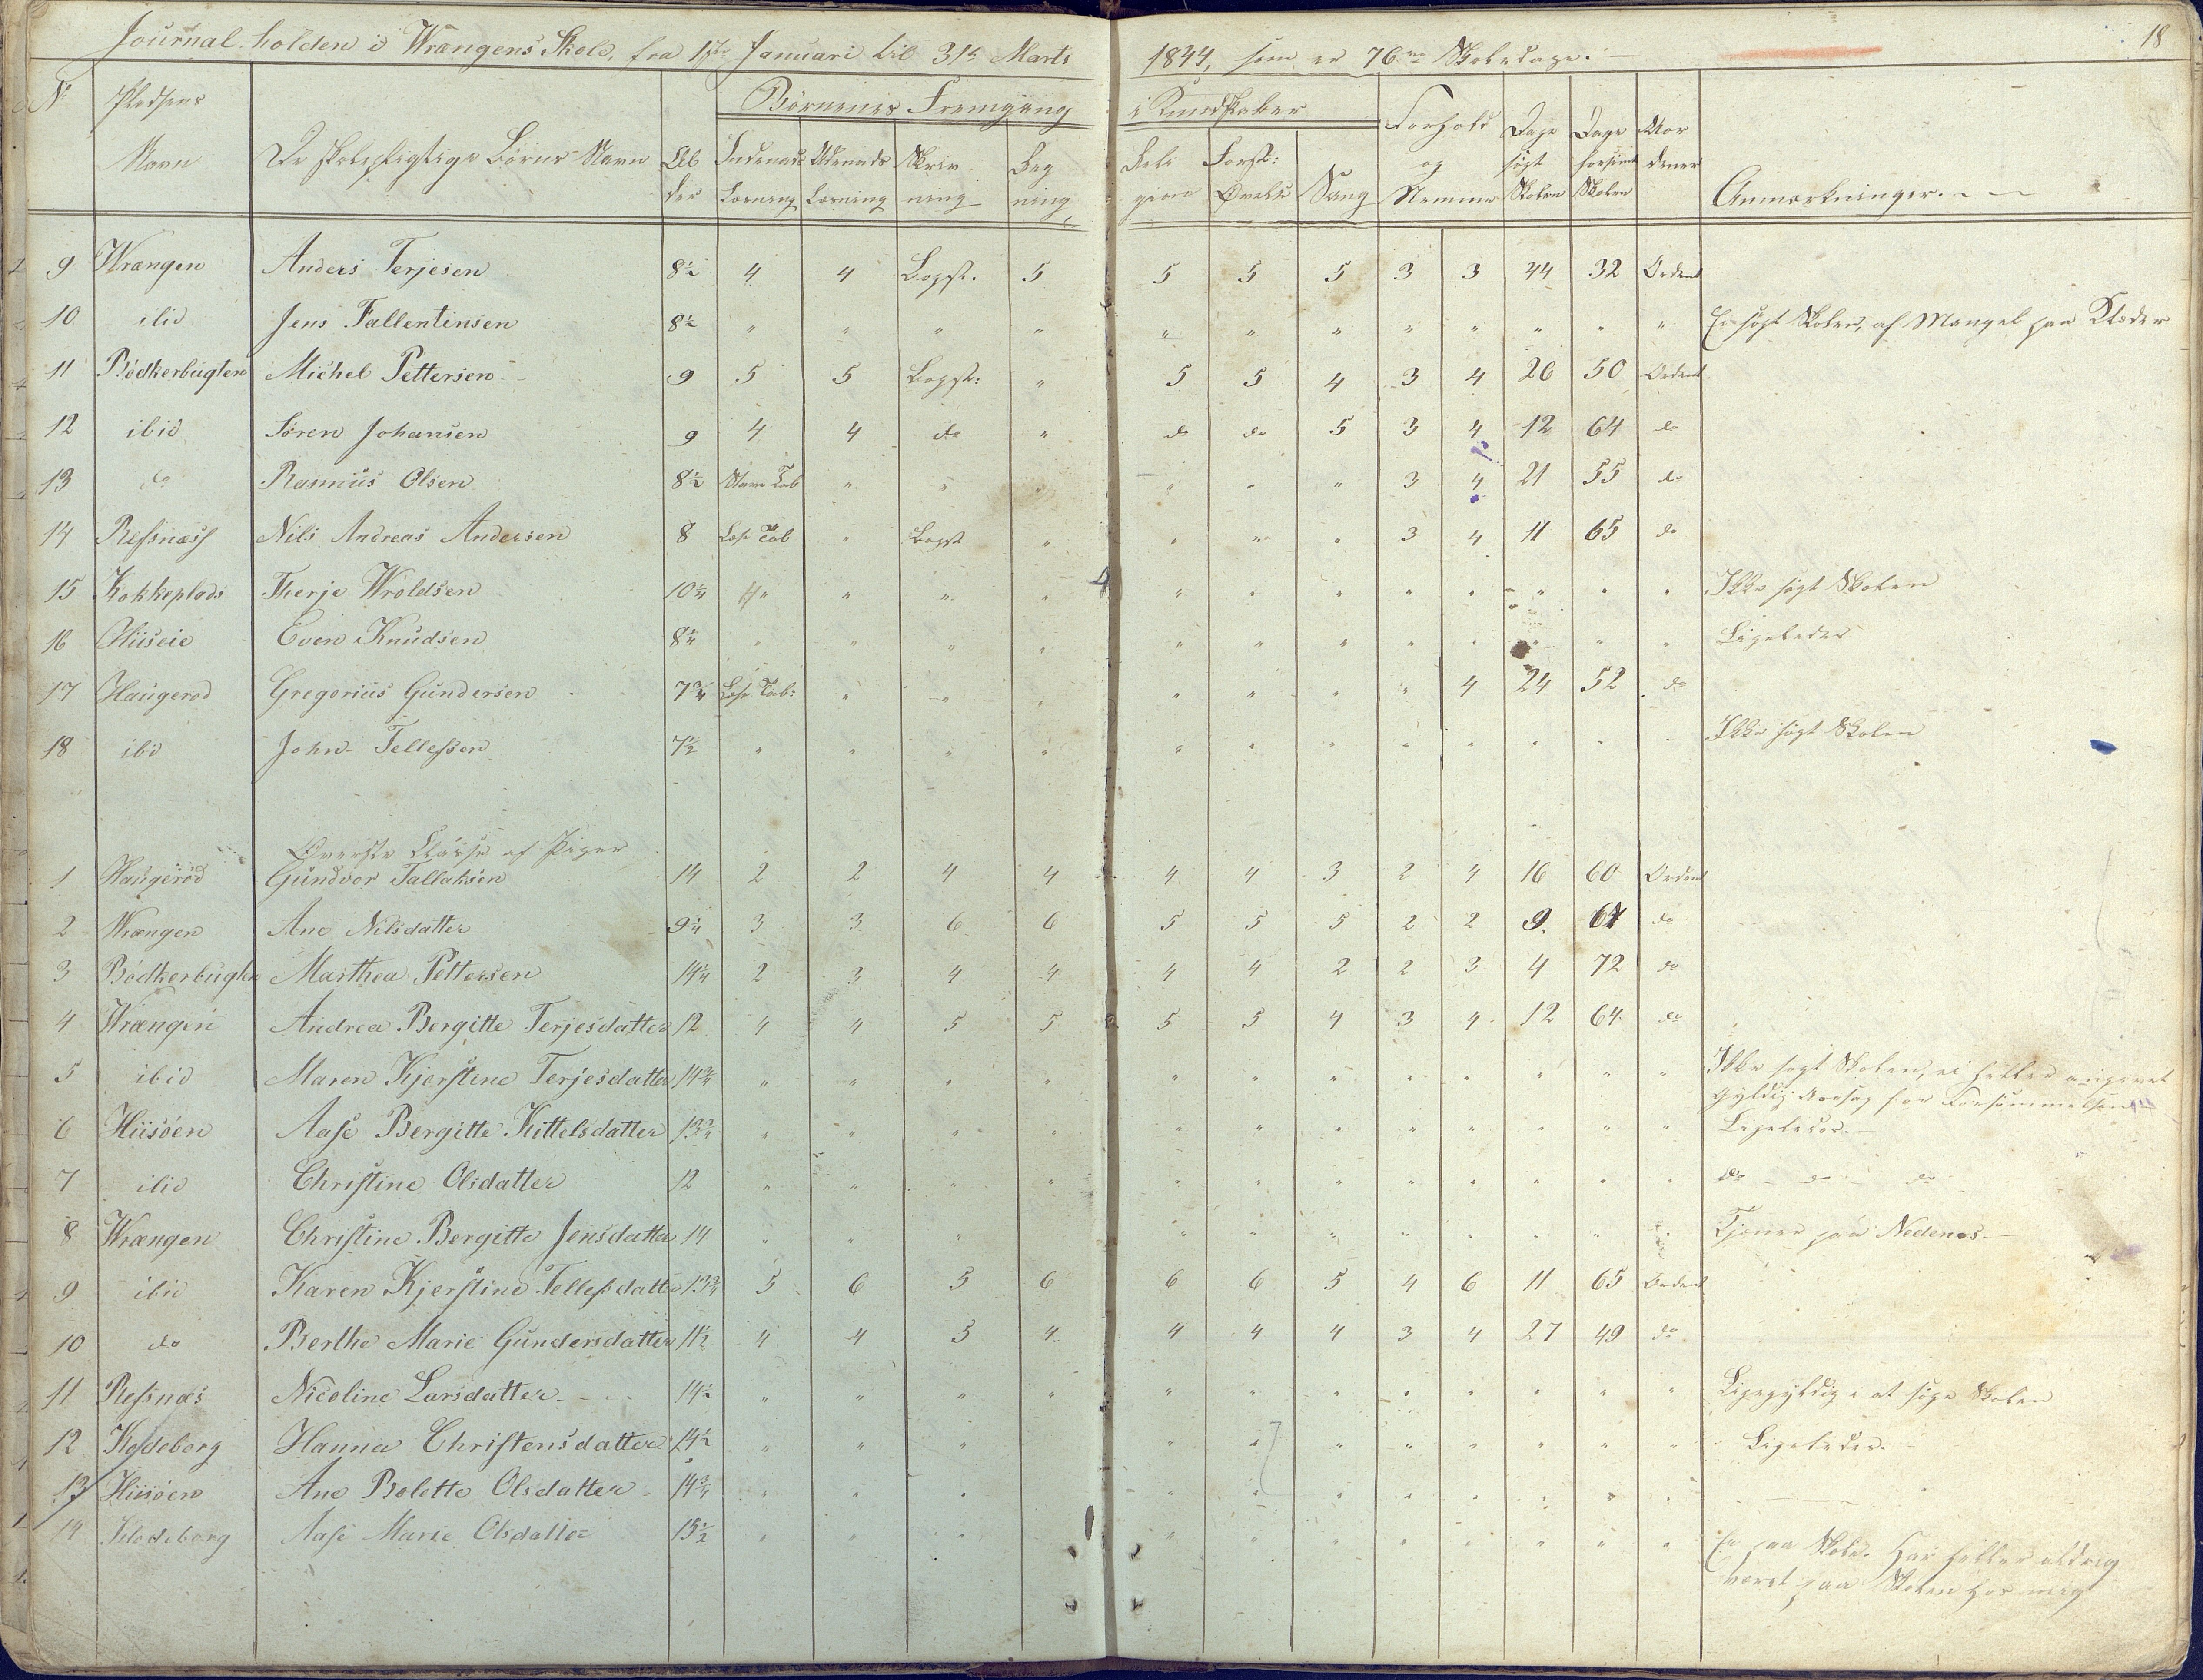 18
Journal holden i Wrangens Skole, fra 1ste Januari til 31te Marts 1844, som er 76 Skoledage.
Børnenes Fremgang i Kundskaber
No Pladsens Navn De skolepligtige Børns Navn Alder Indenads Læsning Udenads Læsning Skrivning Regning Religion Forst: Øvelse Sang Forhold og Nemme Dage søgt Skolen Dage forsømt Skolen Anmærkninger.
9 Wrangen Anders Terjesen 8½ 4 4 Bogst. 5 5 5 5 3 3 44 32 Ordent
10 ibid Jens Fallentinsen 8½ " " " " " " " " " " " " Ei søgt Skolen, af Mangel paa Klæder
11 Bödkerbugten Michel Pettersen 9 5 5 Bogst: " 5 5 4 3 4 26 50 Ordent
12 ibid Sören Johansen 9 4 4 do " do do 5 3 4 12 64 do
13 do Rasmus Olsen 8½ Stave Tab " " " " " " 3 4 21 55 do
14 Refsnæss Nils Andreas Andersen 8 Læse Tab " Bogst " " " " 3 4 11 65 do
15 Kokkeplads Therje Wroldsen 10¼ " " " " " " " " " " " " Ikke søgt Skolen
16 Hiiseie Even Knudsen 8¼ " " " " " " " " " " " " Ligeledes
17 Haugerod Gregorius Gundersen 7¾ Læse Tab: " " " " " " " 4 24 52 do
18 ibd John Tellefsen 7½ " " " " " " " " " " " " Ikke søgt Skolen
Øverste Classe af Piger
1 Haugeröd Gundvor Tallaksen 14 2 2 4 4 4 4 3 2 4 16 60 Ordent
2 Wrængen Ane Nilsdatter 9¼ 3 3 6 6 5 5 5 2 2 9 67 do
3 Bödkerbugten Marthea Pettersen 14¼ 2 3 4 4 4 4 2 2 3 4 72 do
4 Wrængen Andrea Bergitte Terjesdatter 12 4 4 5 5 5 5 4 3 4 12 64 do
5 ibid Maren Kjerstine Terjesdatter 14¾ " " " " " " " " " " " " Ikke søgt Skolen, ei heller angivet
gyldig Aarsag for Forsømmelsen
6 Hiisöen Aase Bergitte Kittelsdatter 13¾ " " " " " " " " " " " " Ligeledes.
7 ibid Christine Olsdatter 12 " " " " " " " " " " " " do do do
8 Wrængen Christine Bergitte Jensdatter 14 " " " " " " " " " " " Tjener paa Nedenes
9 ibid Karen Kjerstine Tellefsdatter 13¾ 5 6 5 6 6 6 5 4 6 11 65 Ordent
10 do Berthe Marie Gundersdatter 11½ 4 4 5 4 4 4 4 3 4 27 49 do
11 Refsnæs Nicoline Larsdatter 14½ " " " " " " " " " " " " Ligegyldig i at søge Skolen
12 Klodeborg Hanna Christensdatter 14½ " " " " " " " " " " " Ligeledes.
13 Hiisöen Ane Bolette Olsdatter 14¾ " " " " " " " " " " "
14 Klodeborg Aase Marie Olsdatter 15½ " " " " " " " " " " " Ei paa Skole. Har heller aldrig
været paa Skolen hos mig